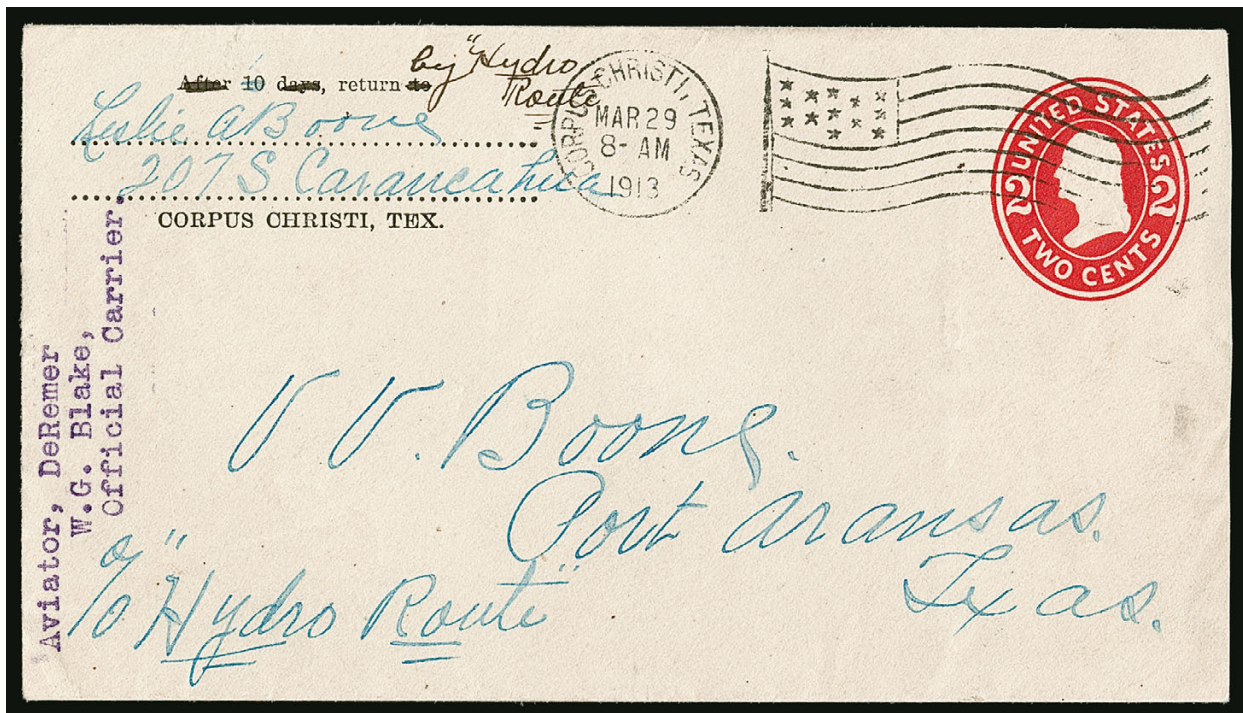 After 10 days, return to by "Hydro
Route"
Leslie A Boone
207 S Carancahua
CORPUS CHRISTI, TEX.
CORPUS CHRISTI, TEXAS
MAR 29
8- AM
1913
UNITED STATES
2 2
TWO CENTS
Aviator, DeRemer
W.G. Blake,
Official Carrier.
V V. Boone.
Port Aransas.
Texas.
c/o "Hydro Route"